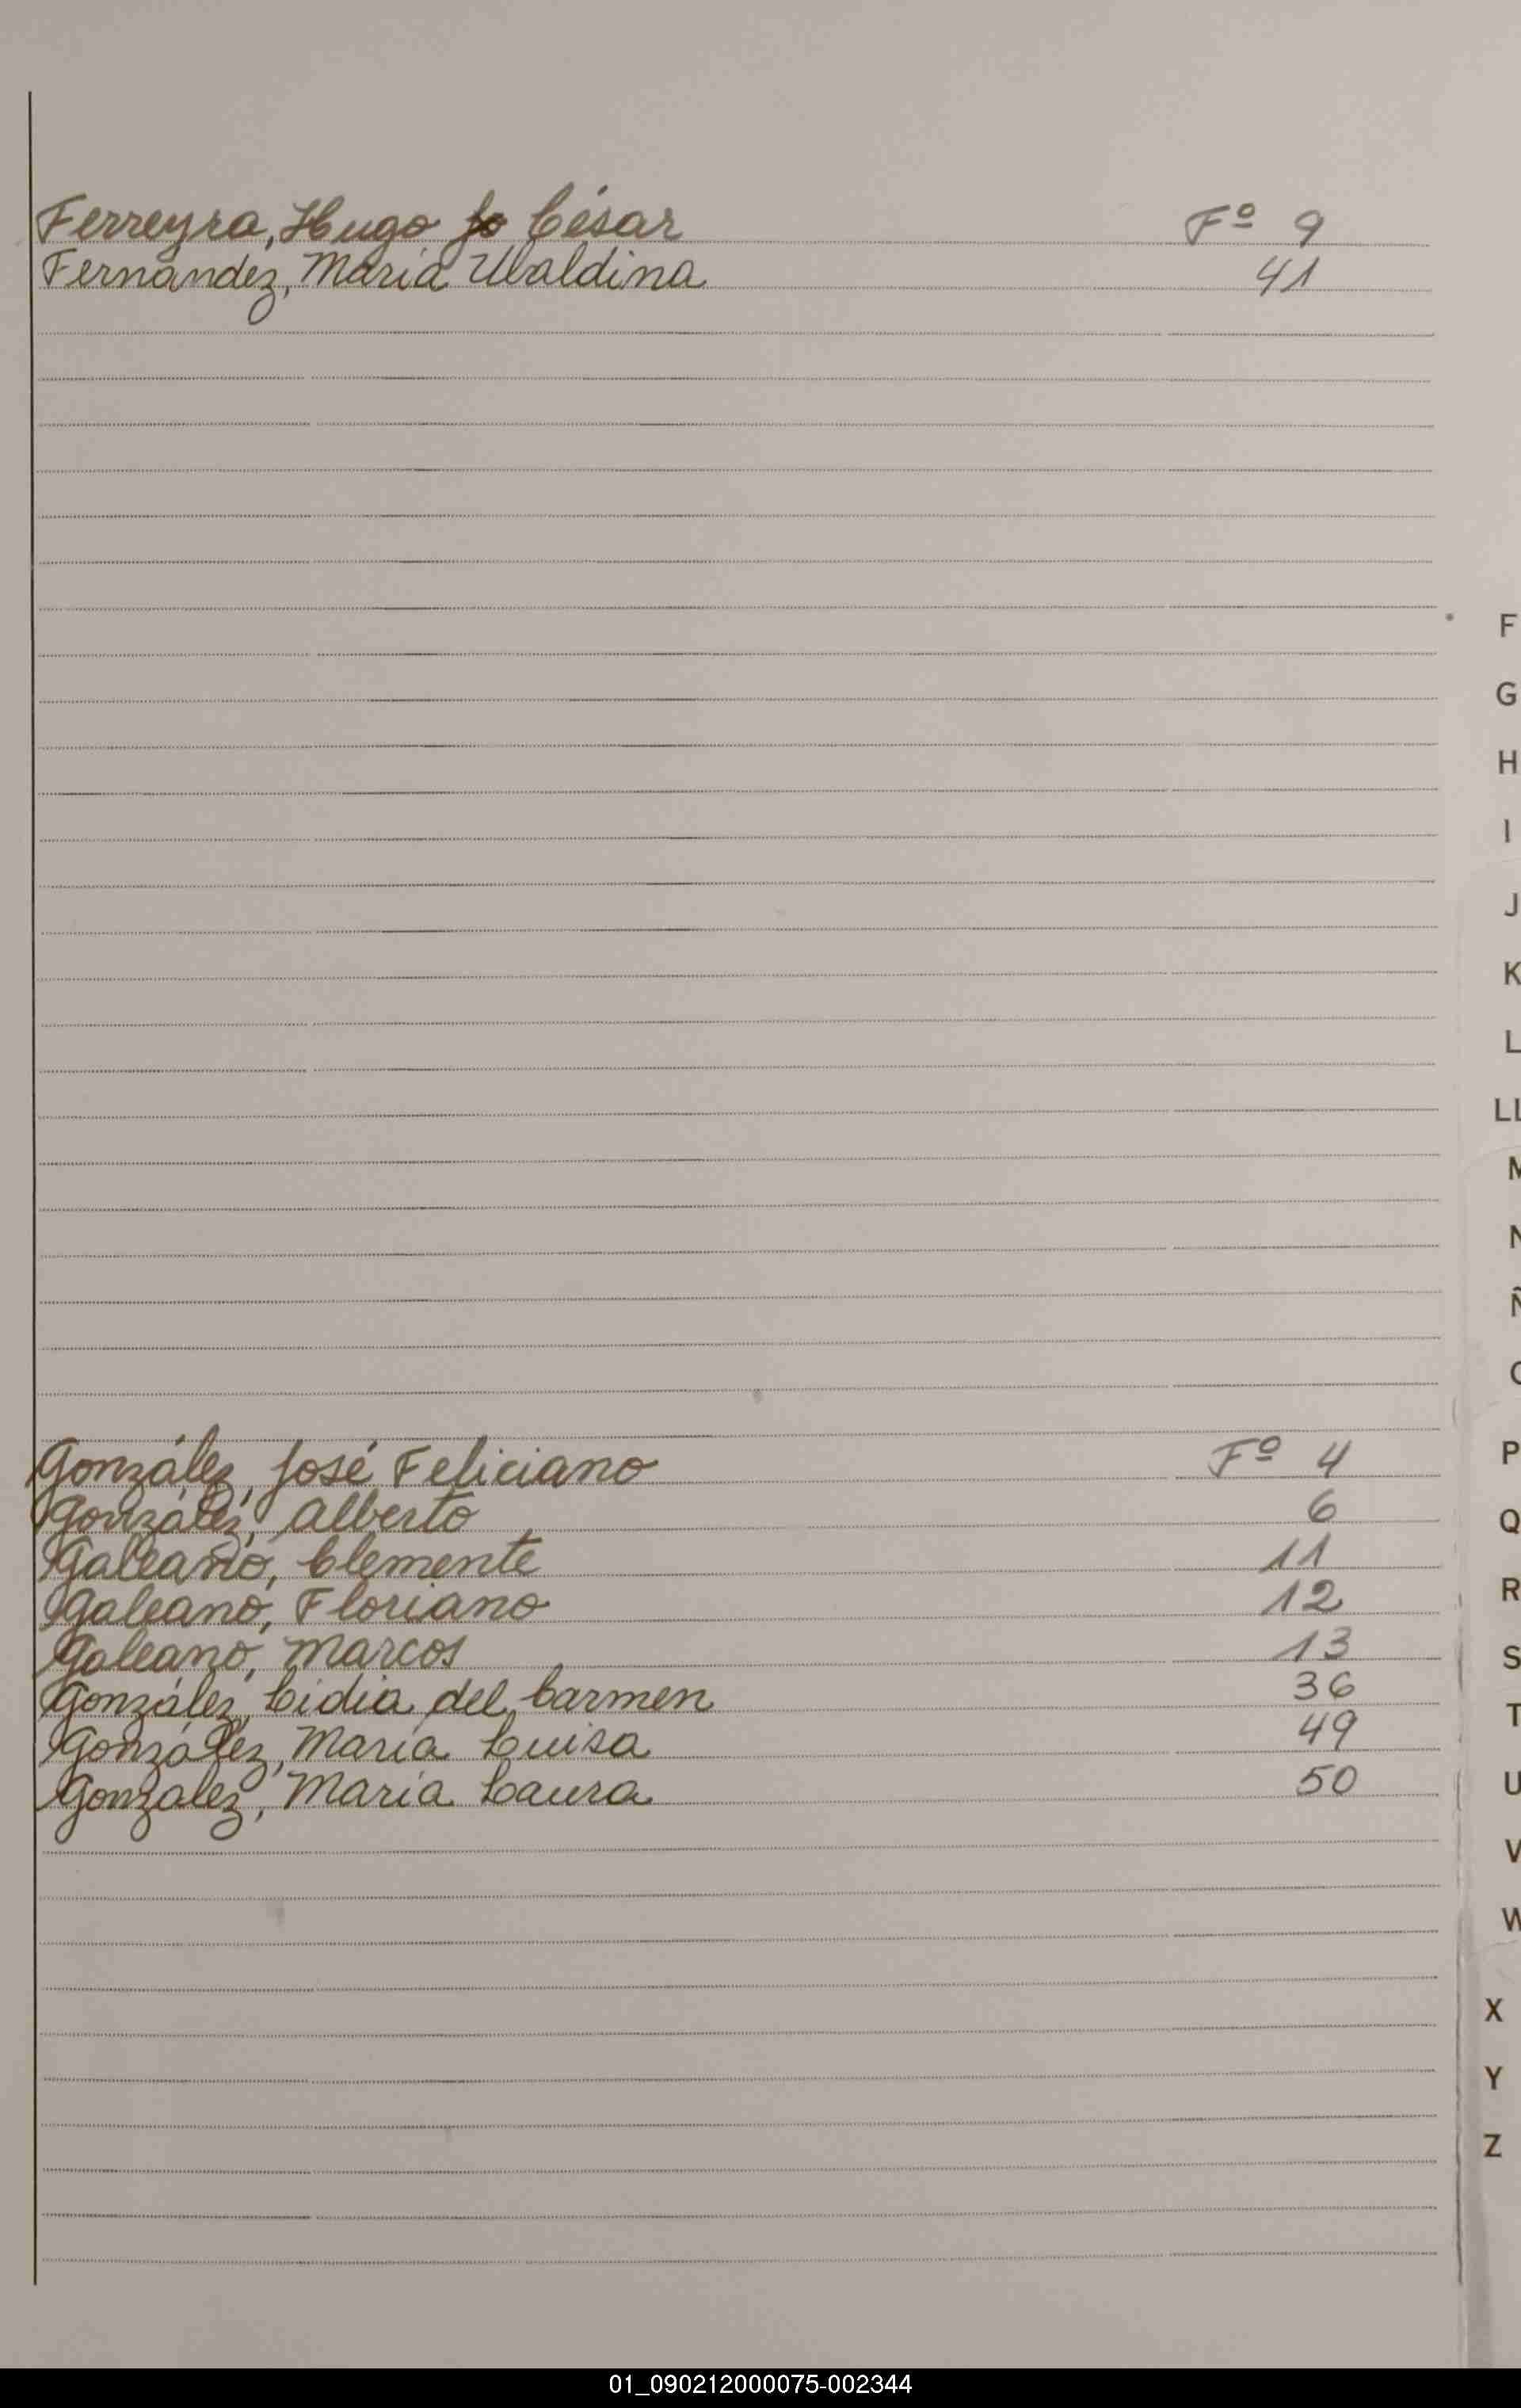 Ferreyra, Hugo César Fº 9
Fernández, María Ubaldina 41
F
G
H
I
J
K
L
LL
M
N
Ñ
O
González, José Feliciano Fº 4
P
González, Alberto 6
Q
Galeano, Clemente 11
Galeano, Floriano 12
R
Galeano, Marcos 13
S
González, Lidia del Carmen 36
T
González, María Luisa 49
González, María Laura 50
U
V
W
X
Y
Z
01_090212000075-002344